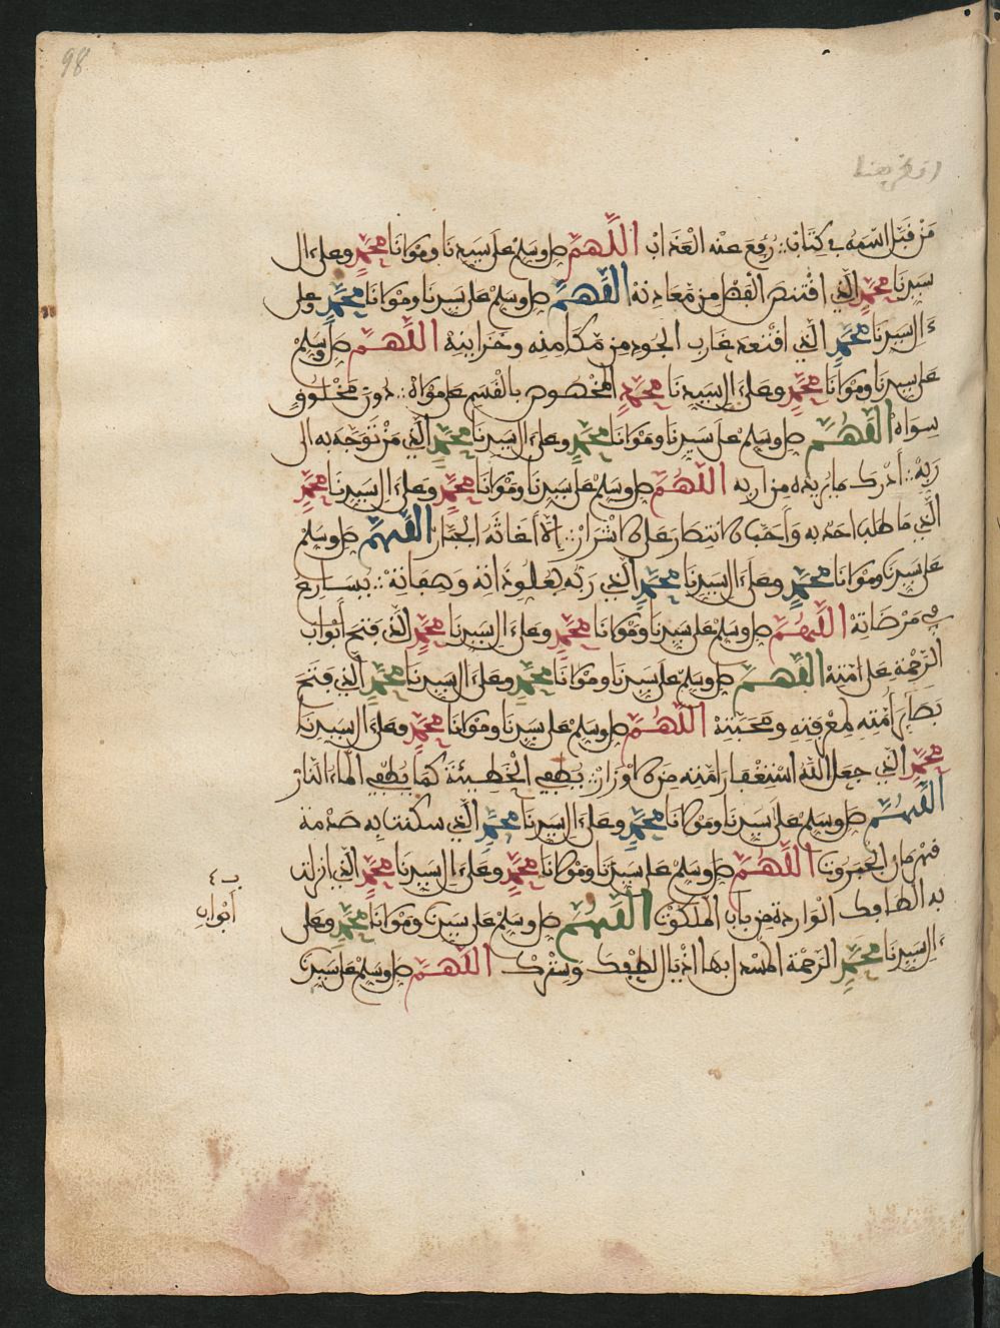 98
من قبل اسمه في كتاب رفع عنه العذاب اللهم صل وسلم على سيدنا ومولانا محمد وعلى ءال
سيدنا محمد الذي اقتنص الفضل من معادنه اللهم صل وسلم على سيدنا ومولانا محمد وعلى
ءال سيدنا محمد الذي اقتعد غارب الجود من مكامنه وخزاينه اللهم صل وسلم
على سيدنا ومولانا محمد وعلى ءال سيدنا محمد المخصوص بالقسم على مولاه دون مخلوق
سواه اللهم صل وسلم على سيدنا ومولانا محمد وعلى ءال سيدنا محمد الذي من توجه به الى
ربه أدرك ما يريده من اربه اللهم صل وسلم على سيدنا ومولانا محمد وعلى ءال سيدنا محمد
الذي ما طلب احد به وأحب الانتصار على الاشرار إلا أغاثه الجبار اللهم صل وسلم
على سيدنا ومولانا محمد وعلى ءال سيدنا محمد الذي ربه بعلو ذاته وصفاته يسارع
في مرضاته اللهم صل وسلم على سيدنا ومولانا محمد وعلى ءال سيدنا محمد الذي فتح أبواب
الرحمة على امته اللهم صل وسلم على سيدنا ومولانا محمد وعلى ءال سيدنا محمد الذي فتح
بصاير أمته لمعرفته ومحبته اللهم صل وسلم على سيدنا ومولانا محمد وعلى ءال سيدنا
محمد الذي جعل الله استغفار امته من الاوزار يطفي الخطيئة كما يطفي الماء النار
اللهم صل وسلم على سيدنا ومولانا محمد وعلى ءال سيدنا محمد الذي سكنت به صدمة
قهرمان الجبروت اللهم صل وسلم على سيدنا ومولانا محمد وعلى ءال سيدنا محمد الذي انزلت
به الطافك الواردة من باب الملكوت اللهم صل وسلم على سيدنا ومولانا محمد وعلى
ءال سيدنا محمد الرحمة المسدل بها اذيال لطفك وسترك اللهم صل وسلم على سيدنا
أبواب